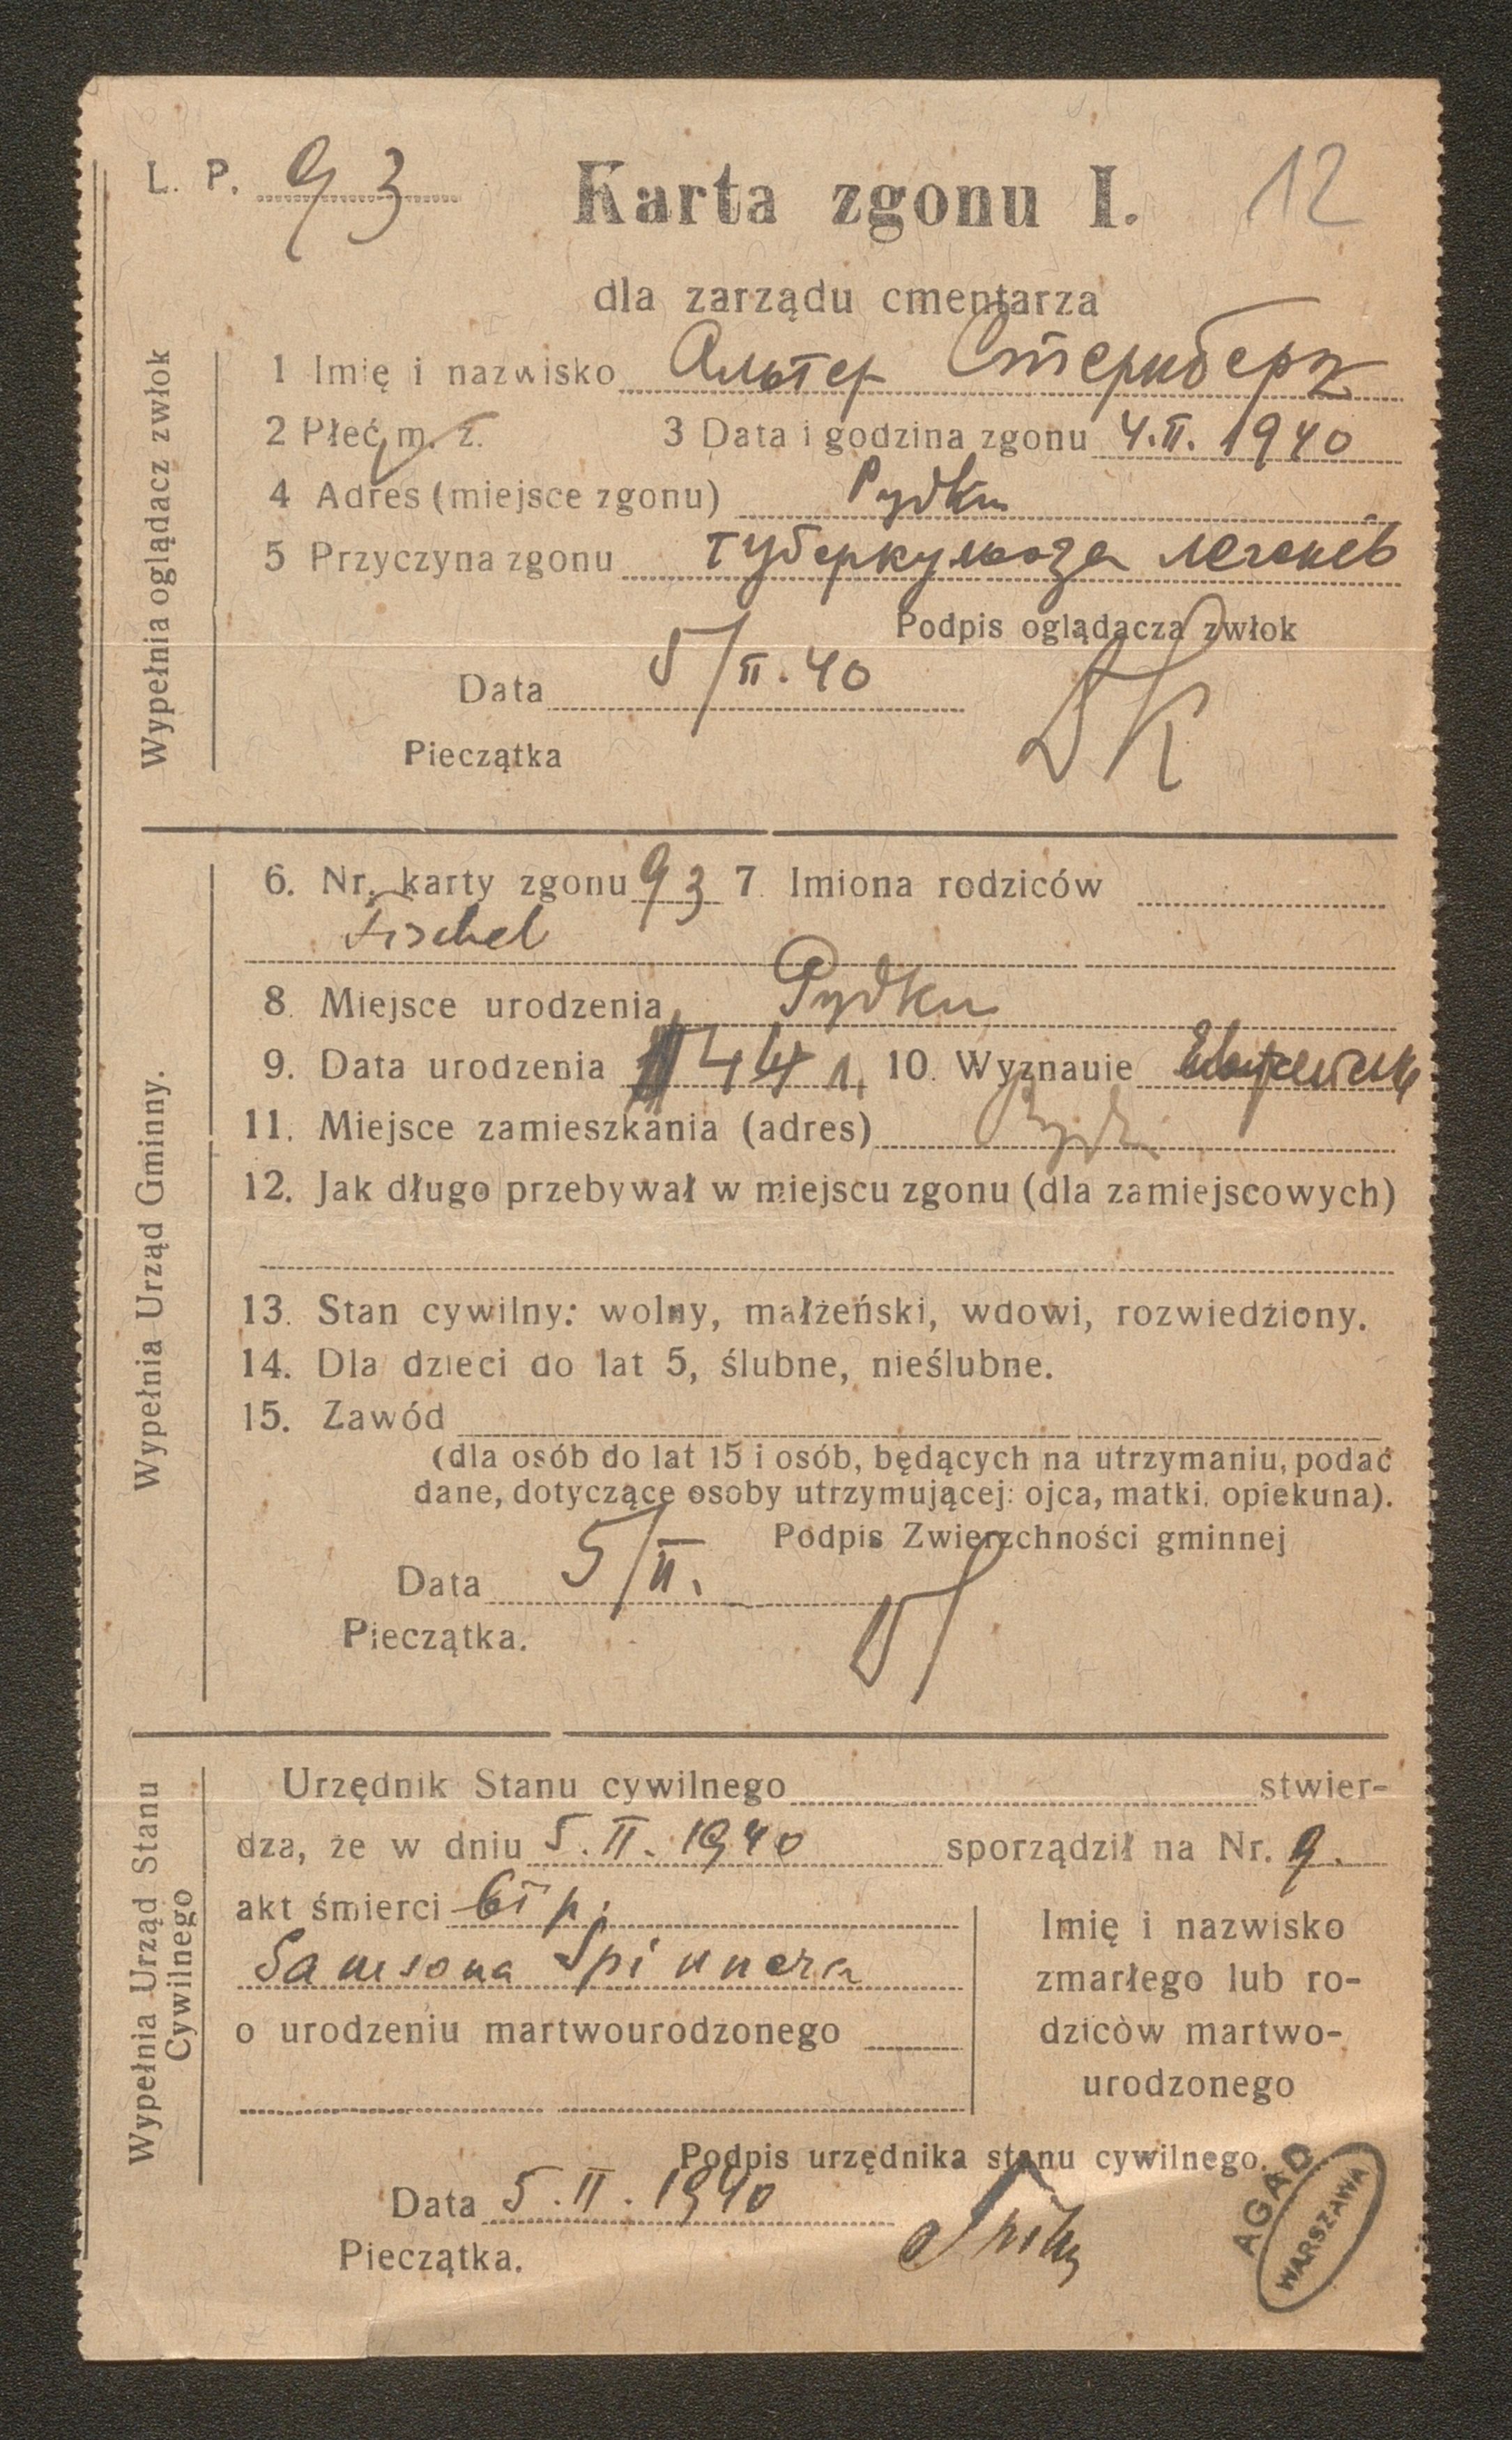 L. P. 93 Karta zgonu I. 12
dla zarządu cmentarza
1 Imię i nazwisko Альтер Стернберг
2 Płeć m. ż. 3 Data i godzina zgonu 4.II. 1940
4 Adres (miejsce zgonu) Рудки
5 Przyczyna zgonu туберкульоза легенев
Podpis oglądacza zwłok
Data 5/II.40
Pieczątka
Wypełnia oglądacz zwłok
6. Nr. karty zgonu 93 7 Imiona rodziców
Fischel
8. Miejsce urodzenia Рудки
9. Data urodzenia 44 10. Wyznauie
11. Miejsce zamieszkania (adres)
12. Jak długo przebywał w miejscu zgonu (dla zamiejscowych)
13. Stan cywilny: wolny, małżeński, wdowi, rozwiedziony.
14. Dla dzieci do lat 5, ślubne, nieślubne.
15. Zawód
(dla osób do lat 15 i osób, będących na utrzymaniu, podać
dane, dotyczące osoby utrzymującej: ojca, matki, opiekuna).
Podpis Zwierzchności gminnej
Data 5/II.
Pieczątka.
Wypełnia Urząd Gminny.
Urzędnik Stanu cywilnego stwier-
dza, że w dniu 5.II.1940 sporządził na Nr. 9.
akt śmierci
Samsona Spinnera
o urodzeniu martwourodzonego
Imię i nazwisko
zmarłego lub ro-
dziców martwo-
urodzonego
Podpis urzędnika stanu cywilnego.
Data 5.II.1940
Pieczątka.
Wypełnia Urząd Stanu
Cywilnego
AGAD
WARSZAWA